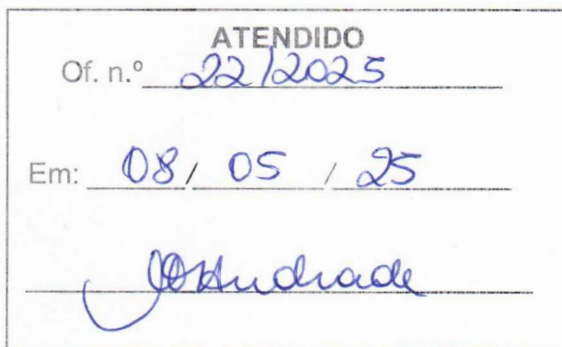 ATENDIDO
Of. n.º 22/2025
Em: 08 / 05 / 25
Andrade